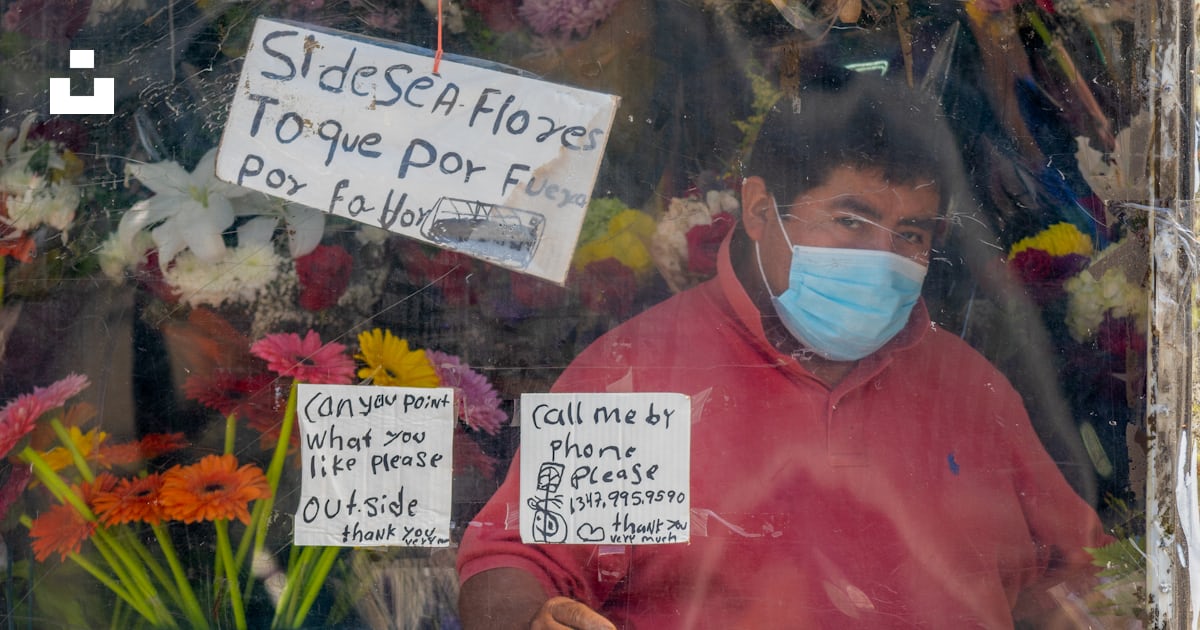 Si desea Flores
Toque por Fuera
por faVor
Can you point
what you
like please
outside
thank you
very m
Call me by
phone
please
1347.995.9590
thank you
very much